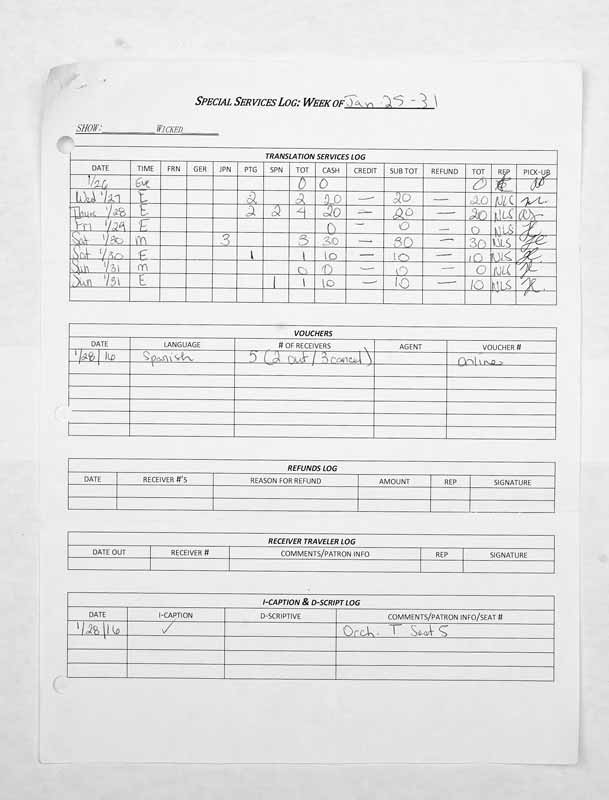 SPECIAL SERVICES LOG: WEEK OF Jan 25-31
SHOW: WICKED
TRANSLATION SERVICES LOG
DATE TIME FRN GER JPN PTG SPN TOT CASH CREDIT SUB TOT REFUND TOT REP PICK-UP
1/26 Eve 0 0 0
Wed 1/27 E 2 2 20 — 20 — 20 NLS
Thurs 1/28 E 2 2 4 20 — 20 — 20 NLS
Fri 1/29 E 0 - 0 - 0 NLS
Sat 1/30 m 3 3 30 — 30 — 30 NLS
Sat 1/30 E 1 1 10 — 10 — 10 NLS
Sun 1/31 m 0 0 — 0 — 0 NLS
Sun 1/31 E 1 1 10 — 10 — 10 NLS
VOUCHERS
DATE LANGUAGE # OF RECEIVERS AGENT VOUCHER #
1/28/16 Spanish 5 (2 out / 3 cancel) online
REFUNDS LOG
DATE RECEIVER #'S REASON FOR REFUND AMOUNT REP SIGNATURE
RECEIVER TRAVELER LOG
DATE OUT RECEIVER # COMMENTS/PATRON INFO REP SIGNATURE
I-CAPTION & D-SCRIPT LOG
DATE I-CAPTION D-SCRIPTIVE COMMENTS/PATRON INFO/SEAT #
1/28/16 ✓ Orch. T Seat 5